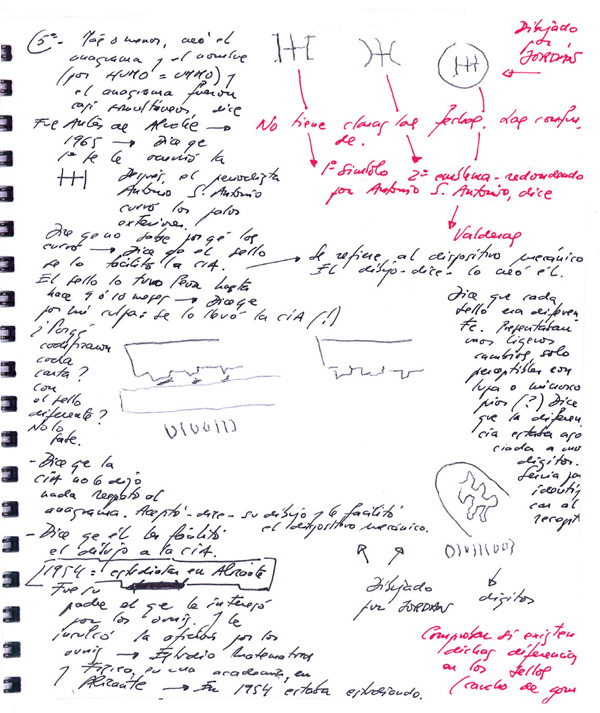 5ª- Más o menos, creó el
anagrama y el nombre
(por HUMO = UMMO) y
el anagrama fueron
casi simultáneos, dice
Fue Antes de Alicante →
1965 → Dice qe
1º se le ocurrió la
Después, el periodista
Antonio S. Antonio
curvó los palos
exteriores.
Dibujado
por
JORDÁN
No tiene claras las fechas. Las confun-
de.
1º Símbolo 2º emblema - redondeado
por Antonio S. Antonio, dice
Valderas
Dice qe no sabe porqé los
curvó → Dice qe el sello
se lo facilitó la CIA. → Se refiere al dispositivo mecánico
El dibujo -dice- lo creó él.
El sello lo tuvo Peña hasta
hace 9 ó 10 meses → Dice qe
por mi culpa: se lo llevó la CIA (!)
¿Porqé
codificaron
cada
carta?
con
el sello
diferente?
No lo
sabe.
Dice que cada
selló era diferen-
te. Presentaban
unos ligeros
cambios solo
perceptibles con
lupa o microsco
pios (?) Dice
que la diferen
cia estaba aso
ciada a unos
dígitos.
Servía pa
identifi
car al
recept
- Dice qe la
CIA no le dijo
nada respecto al
anagrama. Aceptó -dice- su dibujo y le facilitó
el dispositivo mecánico.
- Dice qe él les facilitó
el dibujo a la CIA.
1954 = estudiaba en Alicante
Fue su
padre el qe le interesó
por los ovnis. Y le
inculcó la afición por los
ovnis → Estudió Matemáticas
y Física, en una academia, en
Alicante → En 1954 estaba estudiando.
Dibujado
por JORDÁN
dígitos
Comprobar si existen
dichas diferencias
en los sellos
(caucho de gom